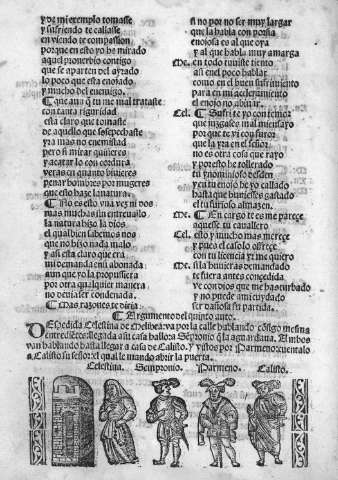 y de mi exemplo tomasse
y sufriendo te callasse
en viendo te compassion
porque en esto yo he mirado
aquel prouerbio contigo
que se aparten del ayrado
lo poco que esta enojado
y mucho del enemigo.
¶ Que aun q̃ tu me mal trataste
con tanta riguridad
esta claro que tomaste
de aquello que sospechaste
yra mas no enemistad
pero si mirar quisieres
y acatar lo con cordura
veras en quanto biuieres
penar hombres por mugeres
que esto haze la natura.
¶ No es esto vna vez ni dos
mas muchas sin entreualo
la natura hizo la dios
el qual bien sabemos nos
que no hizo nada malo
y assi esta claro que era
mi demanda enti abonada
aun que yo la propusiera
por otra qualquier manera
no deuia ser condenada.
¶ Mas razones te diria
si no por no ser muy largar
que la habla con porfia
enojosa es al que oya
y al que habla muy amarga
Me. en todo tuuiste tiento
assi en el poco hablar
como en el buen sufrimiento
para en mi aceleramiento
el enojo no abiuir.
Cel. ¶ Sufri te yo con temor
que tu
por que te vi con furor
que la yra en el señor
no es otra cosa que rayo
y por esto he tollerado
tu ynominioso desden
y en tu enojo he yo callado
hasta que huuiesses gastado
el tu furioso almazen.
Me. ¶ En cargo te es me parece
aquesse tu cauallero
Cel. esto y mucho mas merece
y pues el caso lo ofrece
con tu licencia yr me quiero
Me. si la huuieras demandado
te fuera antes concedida
ve con dios que me has turbado
y no puede auer cuydado
ser dañosa su partida.
¶ El argumento del quinto auto.
DEspedida Celestina de Melibea: va por la calle hablando cõsigo mesma
entre diẽtes: llegada a su casa hallo a Sẽpronio q̃ la aguardaua. Ambos
van hablando hasta llegar a casa de Calisto. y vistos por Parmeno: cuentalo
a Calisto su señor: el qual le mando abrir la puerta.
Celestina. Sempronio. Parmeno. Calisto.